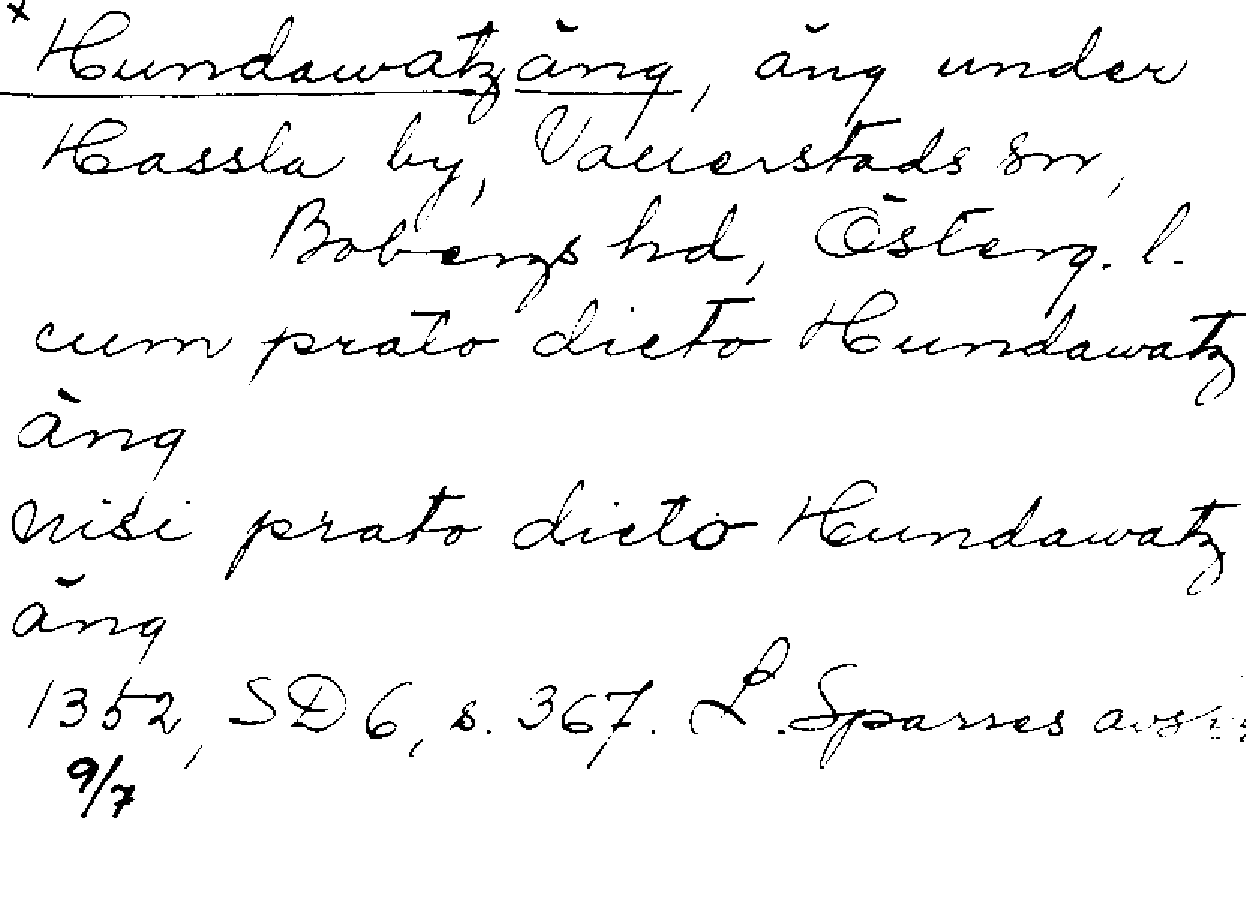 x Hundawatzäng, äng under
Hassla by, Vallerstads sn,
Bobergs hd, Österg. l.
cum prato dicto Hundawatz
äng
nisi prato dicto Hundawatz
äng
1352, SD 6, s. 367. L. Sparres
9/7